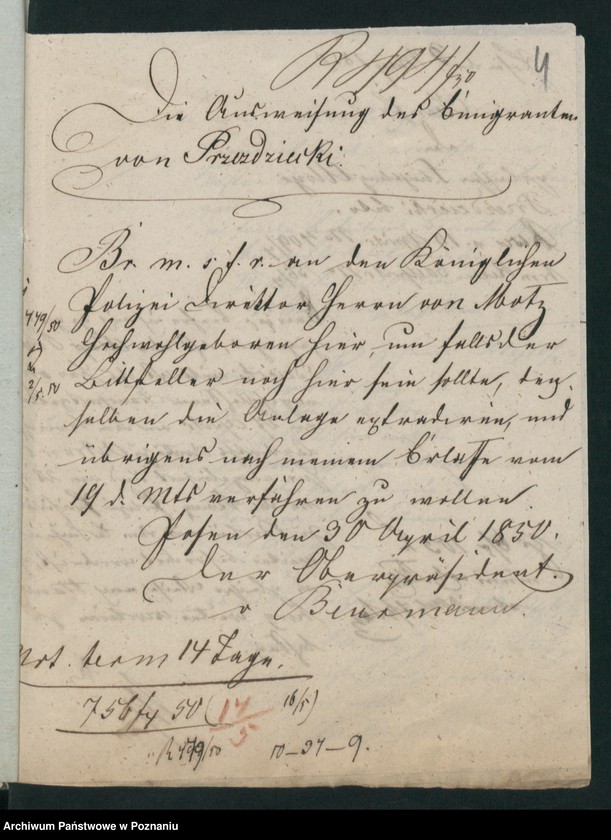 4
Die Ausweisung des Emigranten
von Przezdziecki.
Br. m. s. f. r. an den Königlichen
Polizei Direktor Herrn von Motz
Hochwohlgeboren hier, um falls der
Bittsteller noch hier sein sollte, dem-
selben die Anlage extradiren, und
übrigens nach meinem Erlasse vom
19 d. Mts verfahren zu wollen.
Posen den 30 April 1850.
Der Oberpräsident.
v Beurmann.
term 14 Tage.
50 17/5 16/5)
10-31-9.
Archiwum Państwowe w Poznaniu